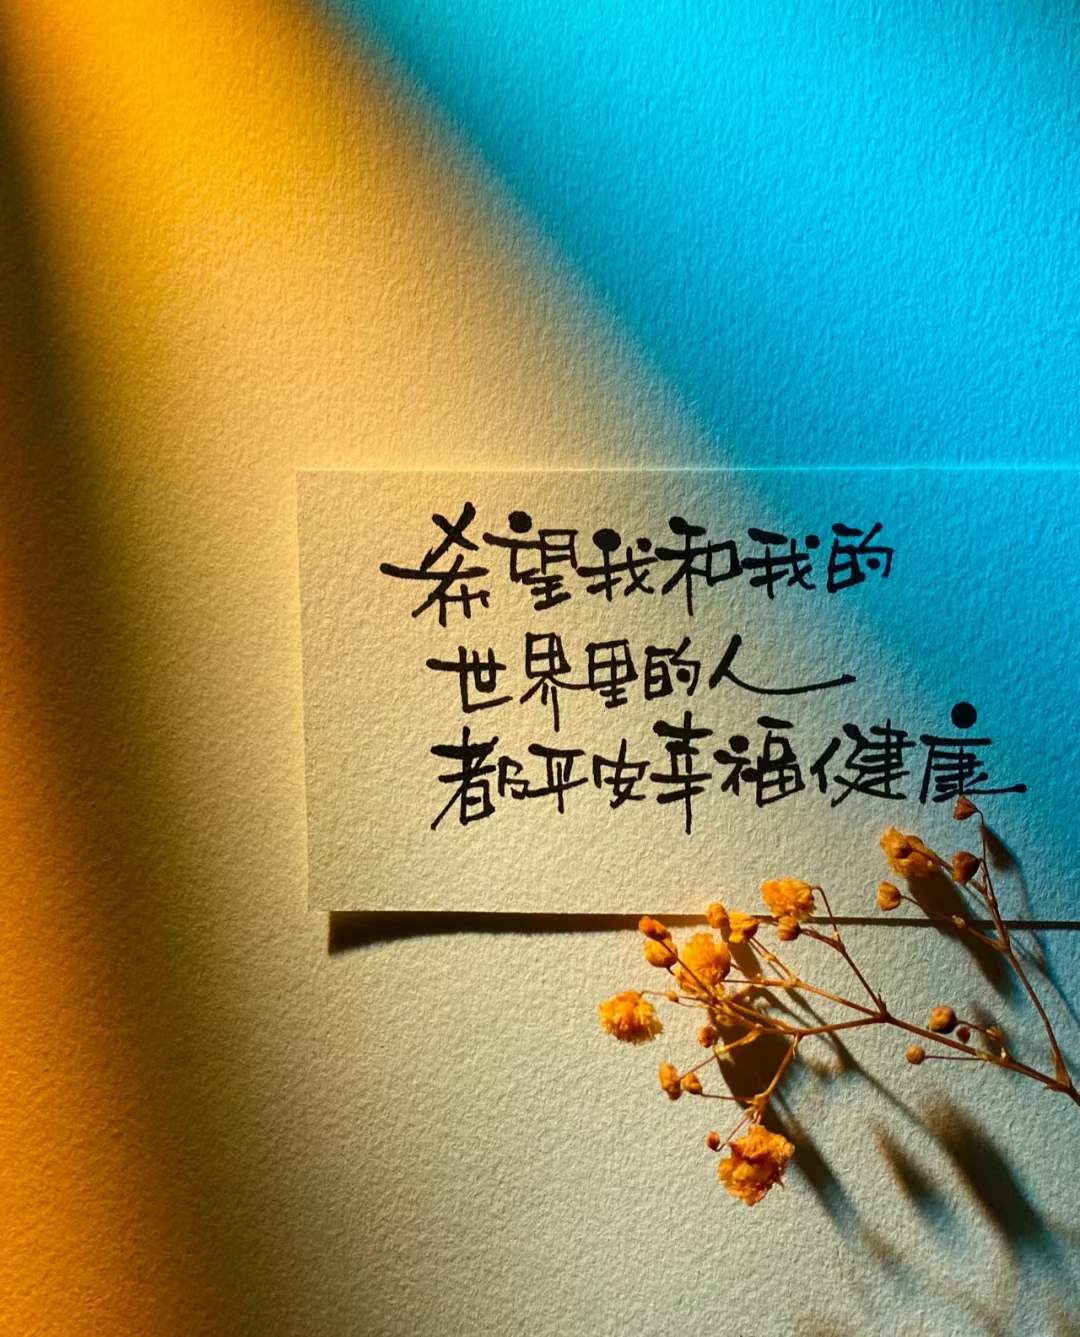 希望我和我的
世界里的人
都平安幸福健康